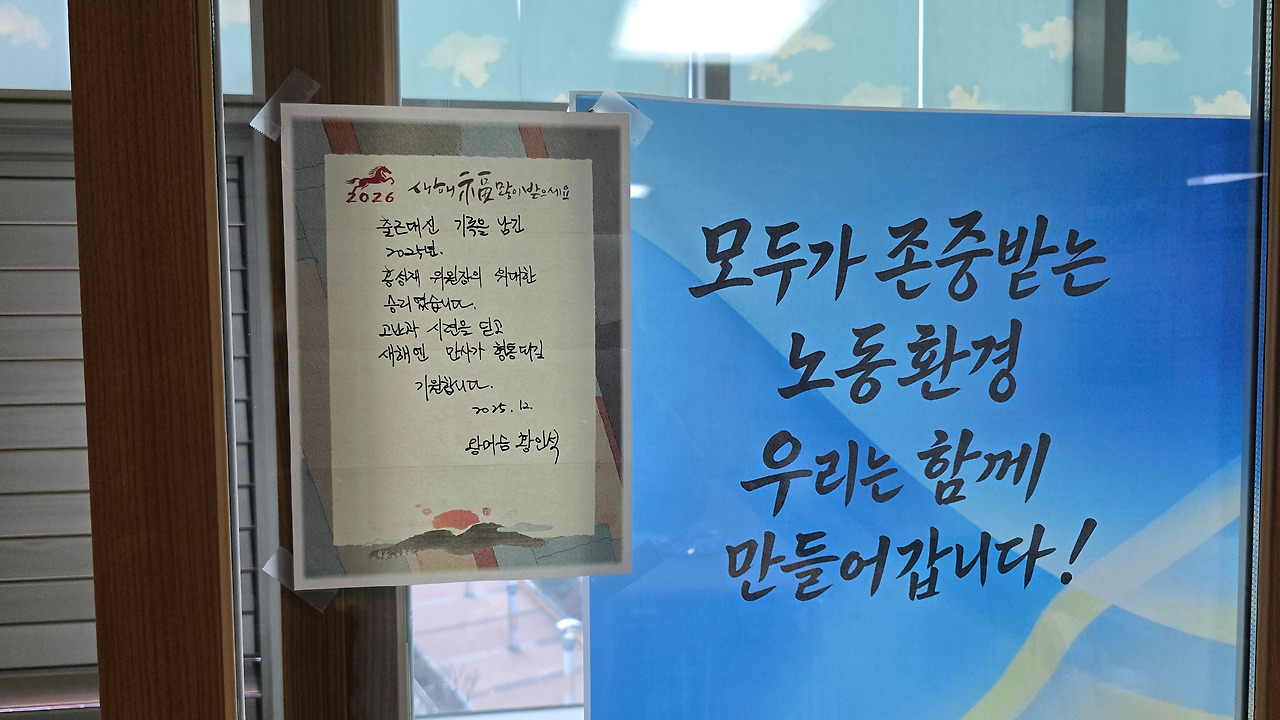 2026 새해 福 많이 받으세요
출근대신 기록을 남긴
2025년.
홍성재 위원장의 위대한
승리였습니다.
고난과 시련을 딛고
새해엔 만사가 형통대길
기원합니다.
2025. 12.
왕머슴 황인석
모두가 존중받는
노동환경
우리는 함께
만들어갑니다!